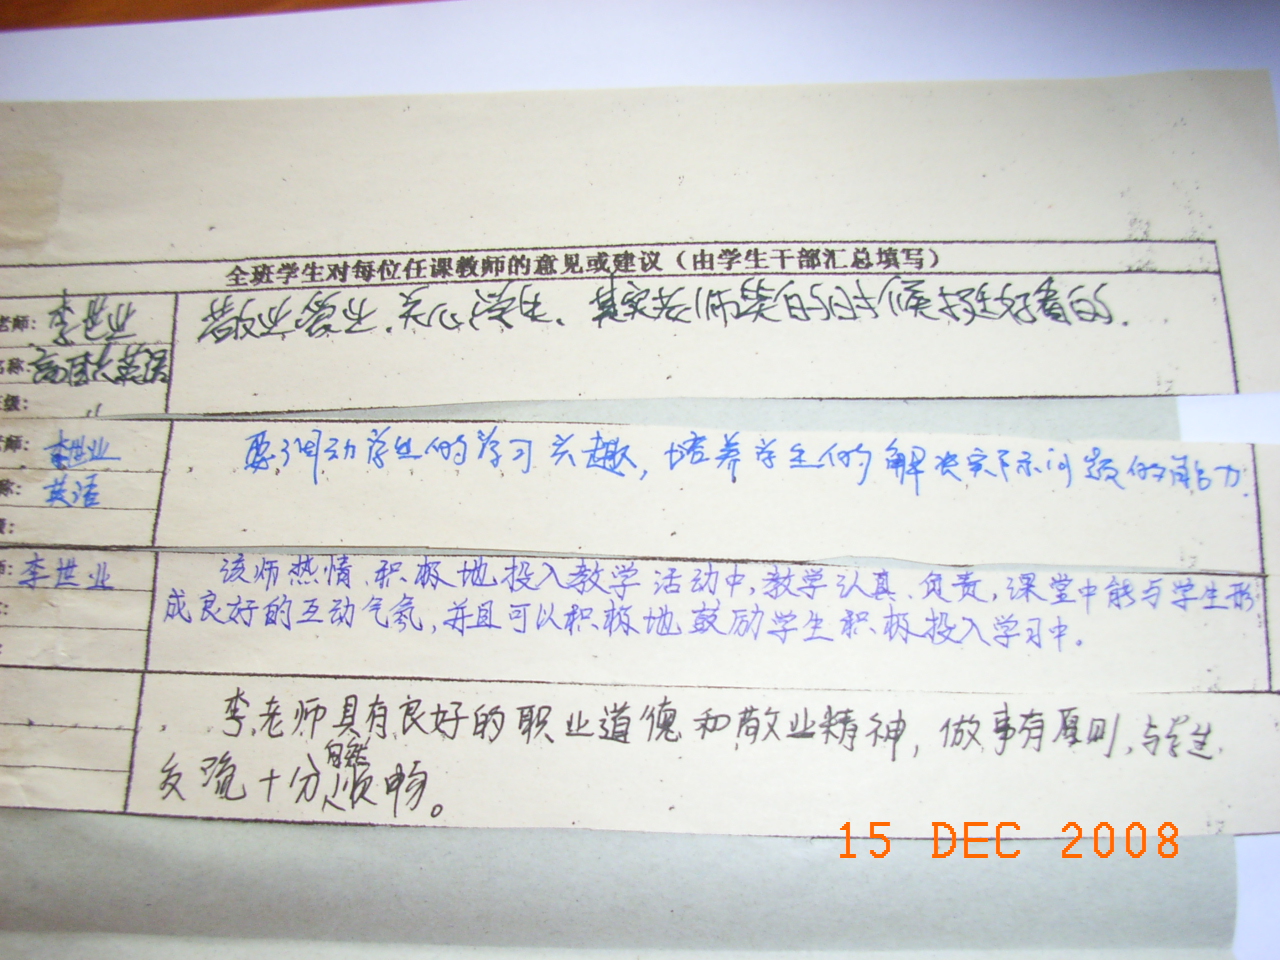 全班学生对每位任课教师的意见或建议（由学生干部汇总填写）
老师: 李世业
敬业爱业，关心学生，其实老师笑的时候挺好看的.
名称: 高目英语
级:
师: 李世业
要调动学生们的学习兴趣, 培养学生们的解决实际问题的能力.
称: 英语
:
: 李世业
该师热情、积极地投入教学活动中,教学认真、负责,课堂中能与学生形
成良好的互动气氛,并且可以积极地鼓励学生积极投入学习中.
李老师具有良好的职业道德和敬业精神, 做事有原则, 与学生
交流十分自然顺畅。
15 DEC 2008